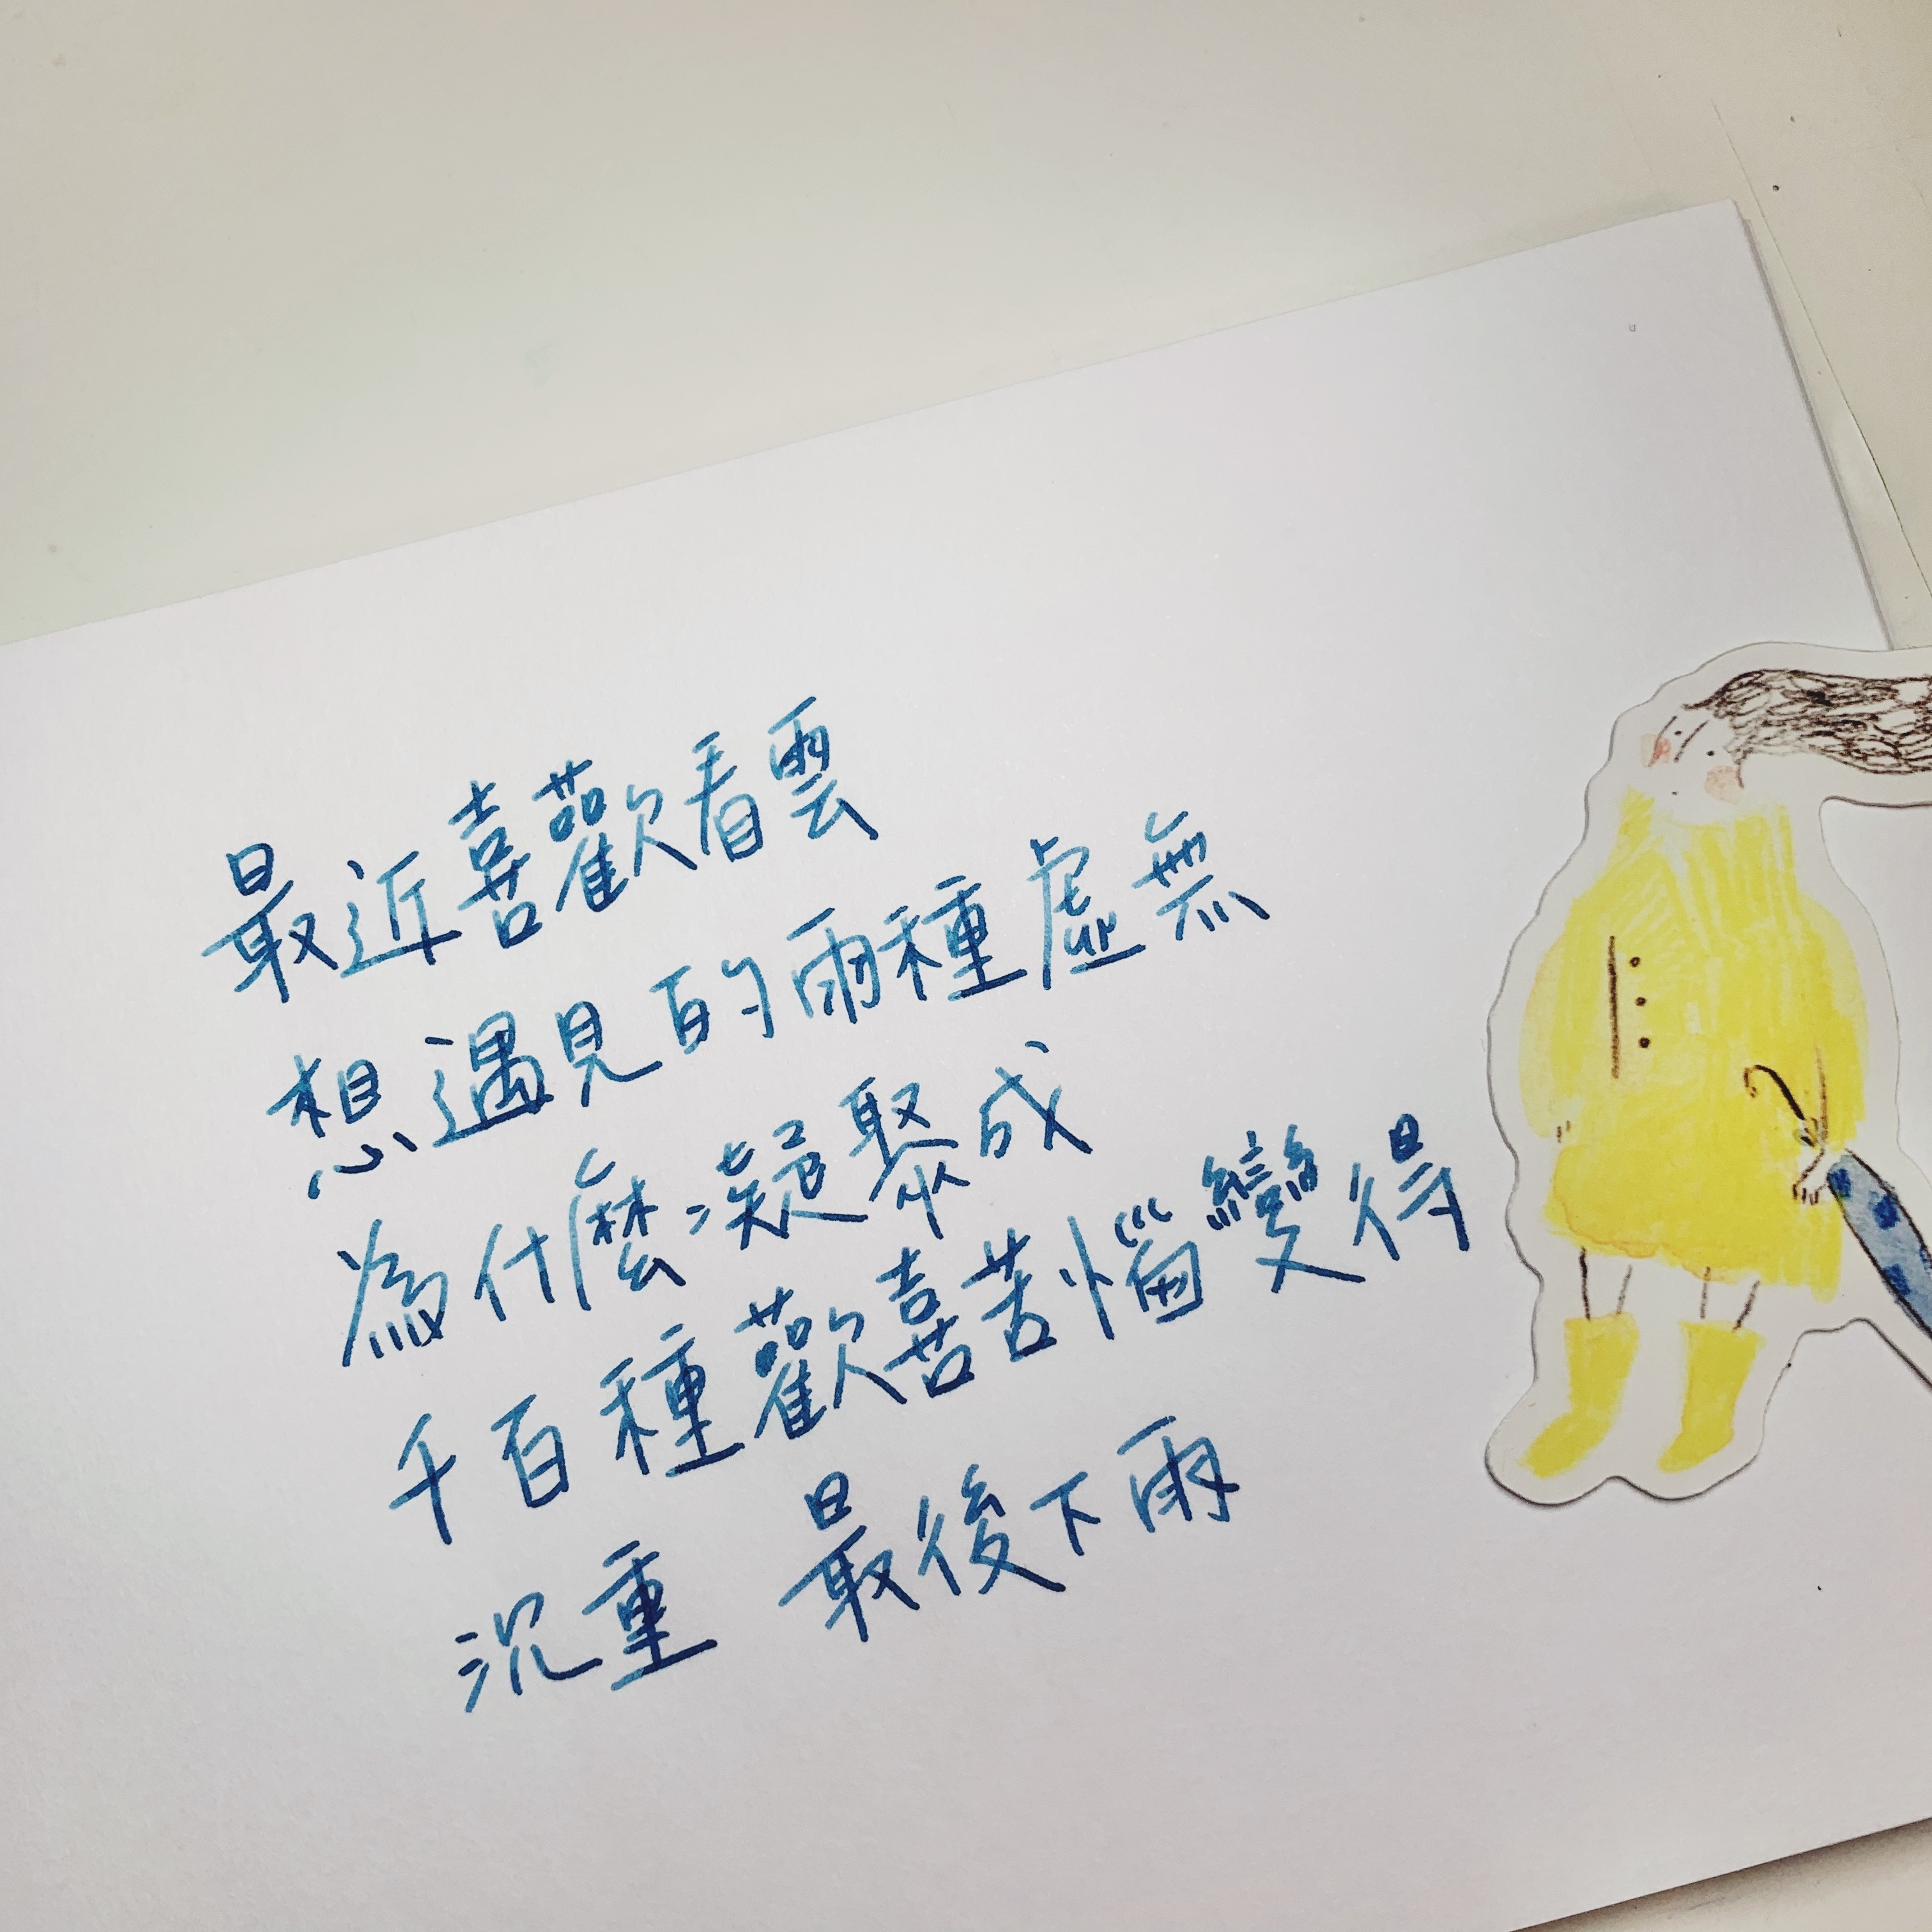 最近喜歡看雲
想遇見的兩種虛無
為什麼凝聚成
千百種歡喜苦惱變得
沉重 最後下雨